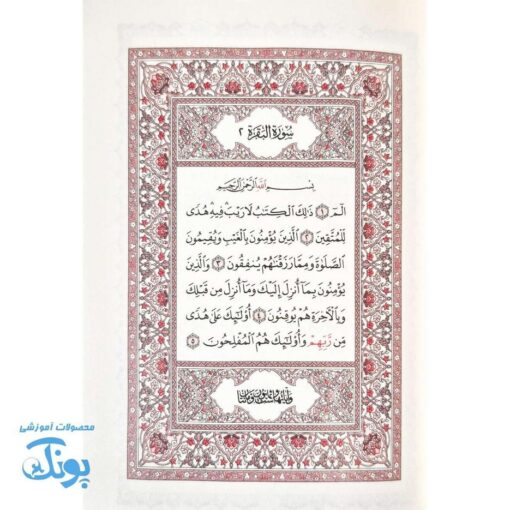 سُورَةُ البَقَرَةِ ٢
بِسْمِ اللَّهِ الرَّحْمٰنِ الرَّحِيمِ
الٓمٓ ﴿١﴾ ذٰلِكَ الْكِتٰبُ لَا رَيْبَ فِيهِ هُدًى
لِلْمُتَّقِينَ ﴿٢﴾ الَّذِينَ يُؤْمِنُونَ بِالْغَيْبِ وَيُقِيمُونَ
الصَّلٰوةَ وَمِمَّا رَزَقْنٰهُمْ يُنْفِقُونَ ﴿٣﴾ وَالَّذِينَ
يُؤْمِنُونَ بِمَا أُنْزِلَ إِلَيْكَ وَمَا أُنْزِلَ مِنْ قَبْلِكَ
وَبِالْآخِرَةِ هُمْ يُوقِنُونَ ﴿٤﴾ أُولٰئِكَ عَلٰى هُدًى
مِنْ رَبِّهِمْ وَأُولٰئِكَ هُمُ الْمُفْلِحُونَ ﴿٥﴾
محصولات آموزشی
پونک